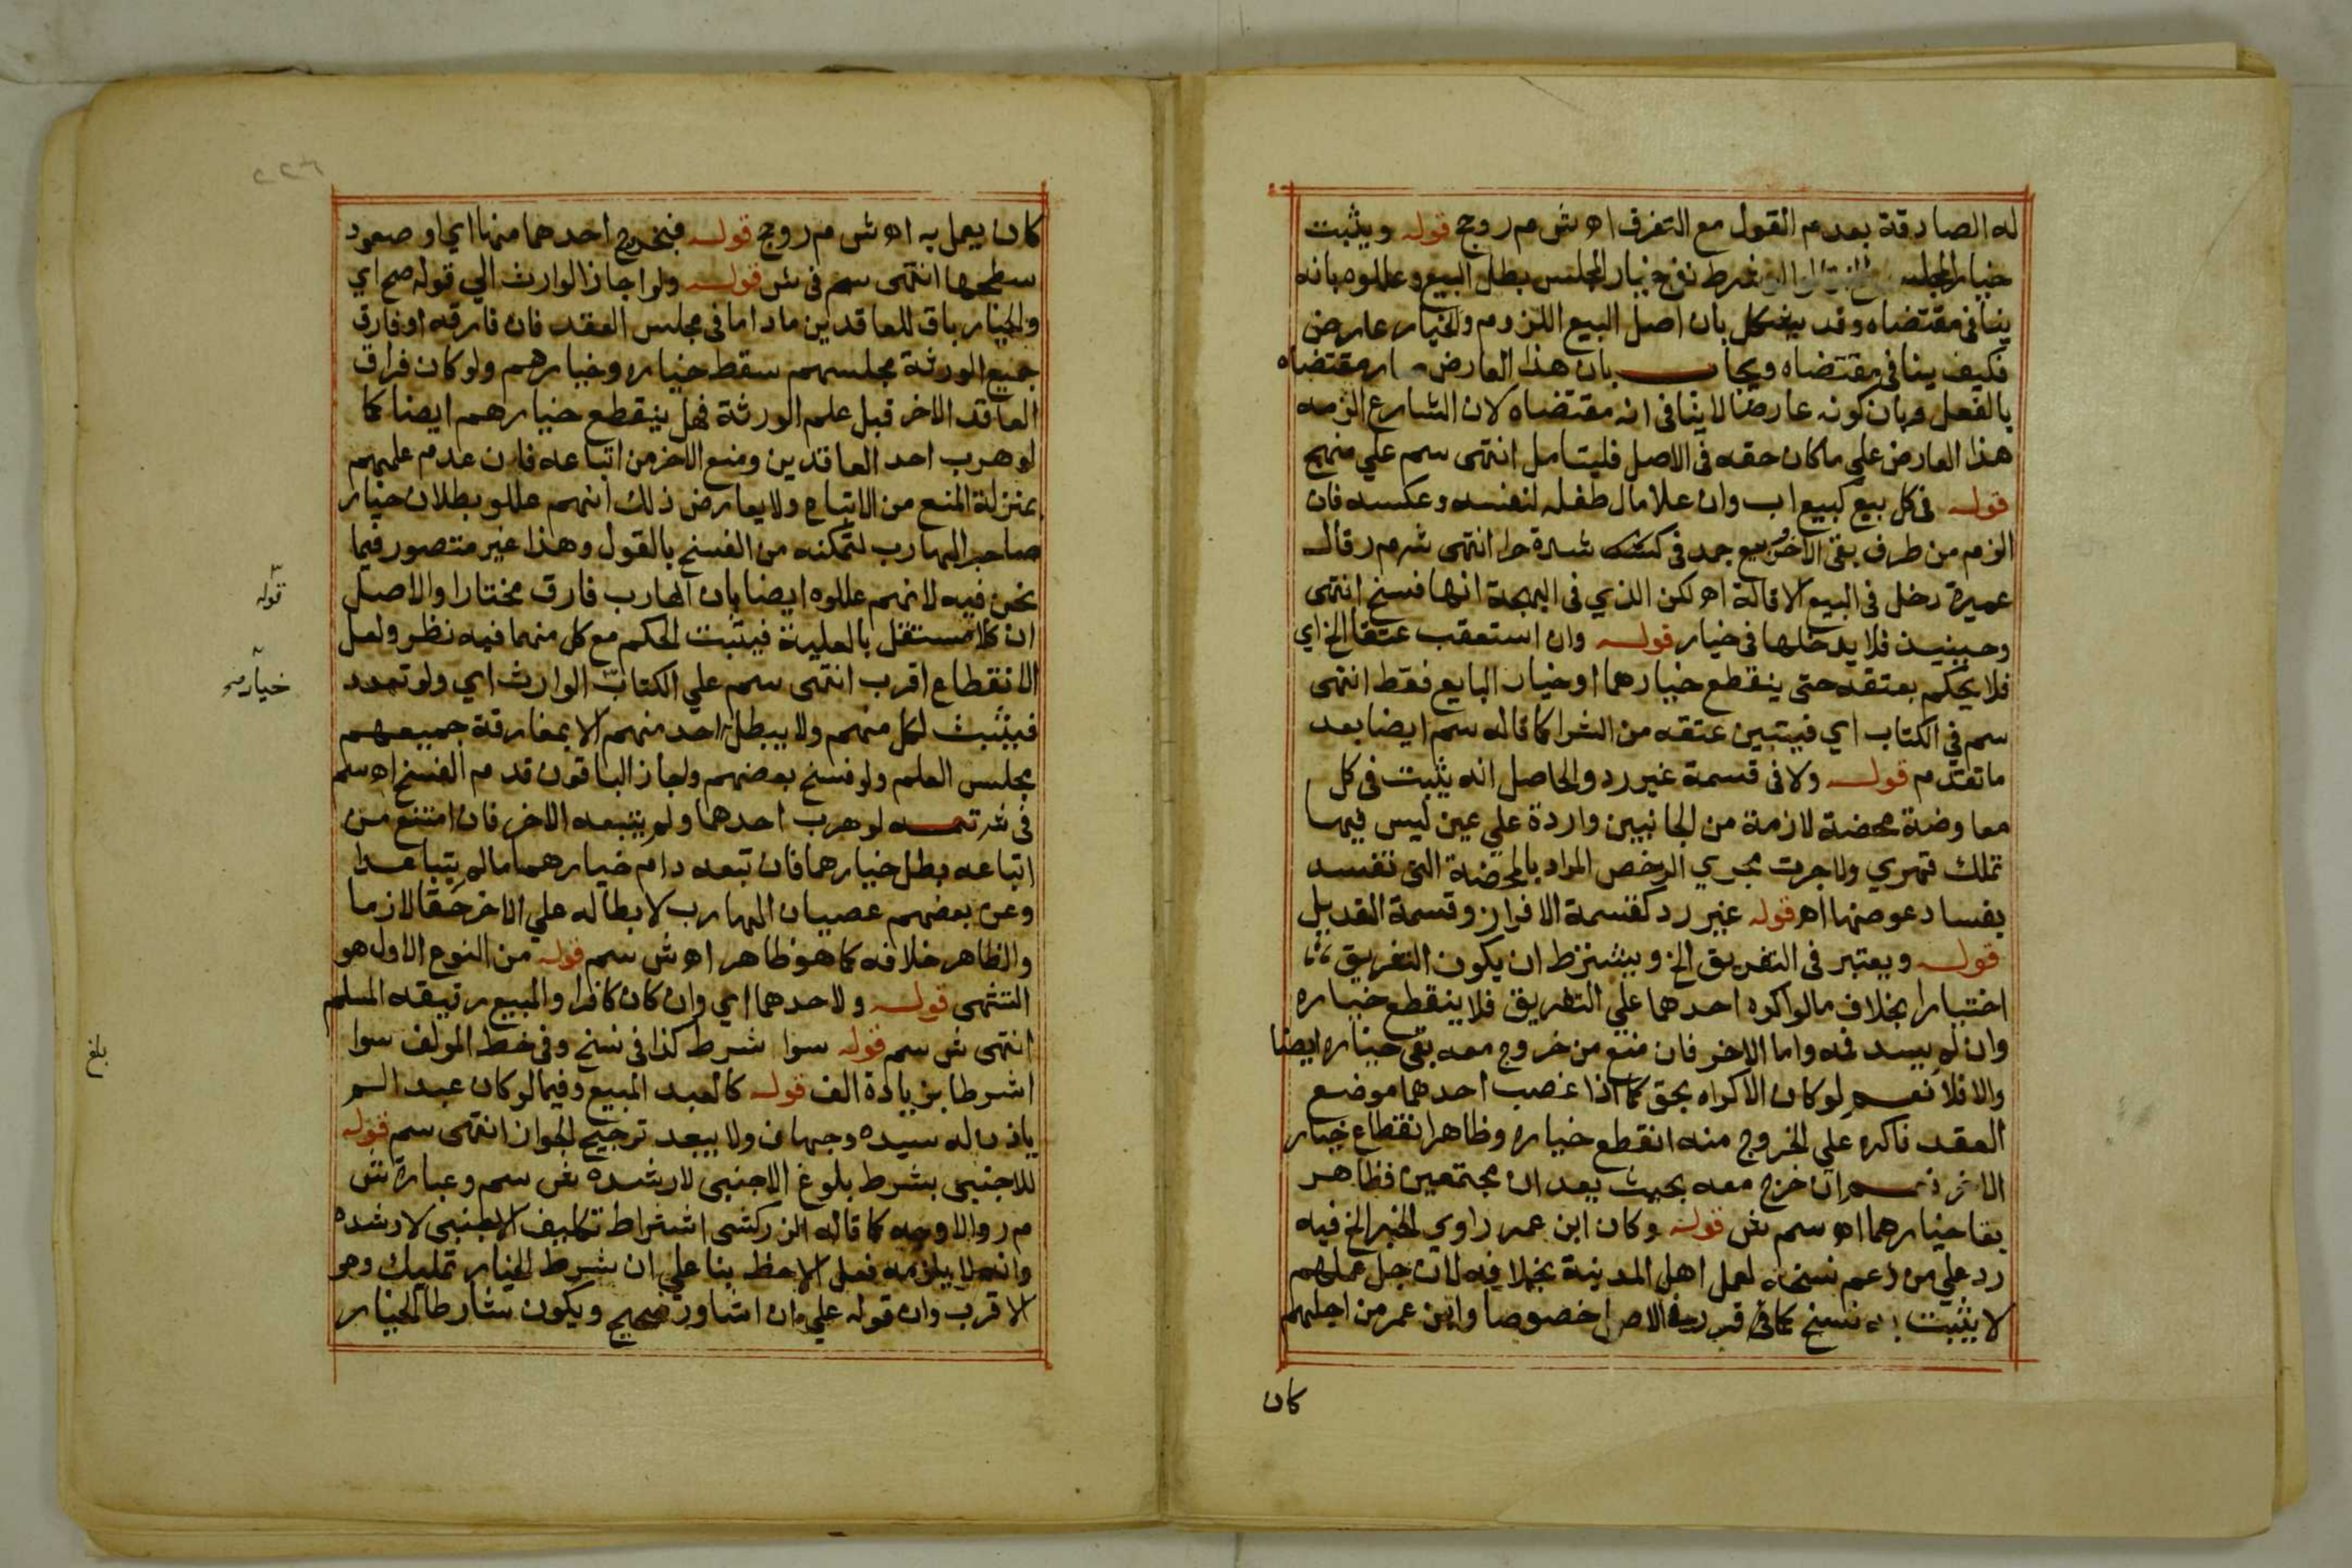 له الصادقة بعدم القول مع التفرق اه ش م روج قوله ويثبت
خيار المجلس شرط نفى خيار المجلس بطل البيع وعللوه بانه
ينافى مقتضاه وقد يشكل بان اصل البيع اللزوم والخيار عارض
فكيف ينافى مقتضاه ويجاب بان هذا العارض صار مقتضاه
بالفعل وبان كونه عارضا لا ينافى انه مقتضاه لان الشارع الزمه
هذا العارض علي ما كان حقه فى الاصل فليتامل انتهى سم علي منهج
قوله فى كل بيع كبيع اب وان علا مال طفله لنفسه وعكسه فان
الزم من طرف بقى الاخر كبيع جمد فى شدة حر انتهى ش م ر قال
عميرة دخل فى البيع الاقالة اه لكن الذي فى البهجة انها فسخ انتهى
وحينيذ فلا يدخلها فى خيار قوله وان استعقب عتقا الخ اي
فلا يحكم بعتقه حتى ينقطع خيارهما او خيار البايع فقط انتهى
سم في الكتاب اي فيتبين عتقه من الشرا كما قاله سم ايضا بعد
ما تقدم قوله ولا فى قسمة غير رد والحاصل انه يثبت فى كل
معاوضة محضة لازمة من الجانبين واردة علي عين ليس فيها
تملك قهري ولا جرت مجري الرخص المراد بالمحضة التى تفسد
بفساد عوضها اه قوله غير رد كقسمة الافراز وقسمة التعديل
قوله ويعتبر فى التفريق الخ ويشترط ان يكون التفريق
اختيارا بخلاف ما لو اكره احدهما علي التفريق فلا ينقطع خياره
وان لم يسد فمه واما الاخر فان منع من خروج معه بقى خياره ايضا
والا فلا نعم لو كان الاكراه بحق كما اذا غصب احدهما موضع
العقد فاكره علي الخروج منه انقطع خياره وظاهر انقطاع خيار
الاخر نعم ان خرج معه بحيث يعدان مجتمعين فظاهر
بقا خيارهما اه سم ش قوله وكان ابن عمر راوي الخبر الخ فيه
رد علي من زعم نسخه لعمل اهل المدينة بخلافه لان جل عملهم
لا يثبت به نسخ كما في الاصل خصوصا وابن عمر من اجلهم
كان
كان يعمل به اه ش م روج قوله فبخروج احدهما منها اي او صعود
سطحها انتهى سم فى ش قوله ولو اجاز الوارث الي قوله صح اي
والخيار باق للعاقدين ما داما فى مجلس العقد فان فارقه او فارق
جميع الورثة مجلسهم سقط خياره وخيارهم ولو كان فراق
العاقد الاخر قبل علم الورثة فهل ينقطع خيارهم ايضا كما
لو هرب احد العاقدين ومنع الاخر من اتباعه فان عدم علمهم
بمنزلة المنع من الاتباع ولا يعارض ذلك انهم عللو بطلان خيار
صاحب الهارب لتمكنه من الفسخ بالقول وهذا غير متصور فيما
نحن فيه لانهم عللوه ايضا بان الهارب فارق مختارا والاصل
ان كلا مستقل بالعلية فيثبت الحكم مع كل منهما فيه نظر ولعل
الانقطاع اقرب انتهى سم علي الكتاب الوارث اي ولو تعدد
فيثبت لكل منهم ولا يبطل احد منهم الا بمفارقة جميعهم
مجلس العلم ولو فسخ بعضهم واجاز الباقون قدم الفسخ اه سم
فى ش تتمه لو هرب احدهما ولم يتبعه الاخر فان امتنع من
اتباعه بطل خيارهما فان تبعه دام خيارهما ما لم يتباعدا
وعن بعضهم عصيان الهارب لابطاله علي الاخر حقا لازما
والظاهر خلافه كما هو ظاهر اه ش سم قوله من النوع الاول هو
التشهى قوله ولاحدهما اي وان كان كافرا والمبيع رقيقه المسلم
انتهى ش سم قوله سوا شرط كذا فى نسخ وفى خط المولف سوا
اشرطا بزيادة الف قوله كالعبد المبيع وفيما لو كان عبدا لم
ياذن له سيده وجهان ولا يبعد ترجيح الجواز انتهى سم قوله
للاجنبى بشرط بلوغ الاجنبى لا رشده ش سم وعبارة ش
م ر والاوجه كما قاله الزركشى اشتراط تكليف الاجنبى لا رشده
وانه لا يلزمه فعل الاحظ بنا علي ان شرط الخيار تمليك وهو
الاقرب وان قوله علي ان اشاور صحيح ويكون شارطا الخيار
قوله
خيار صح
بلغ